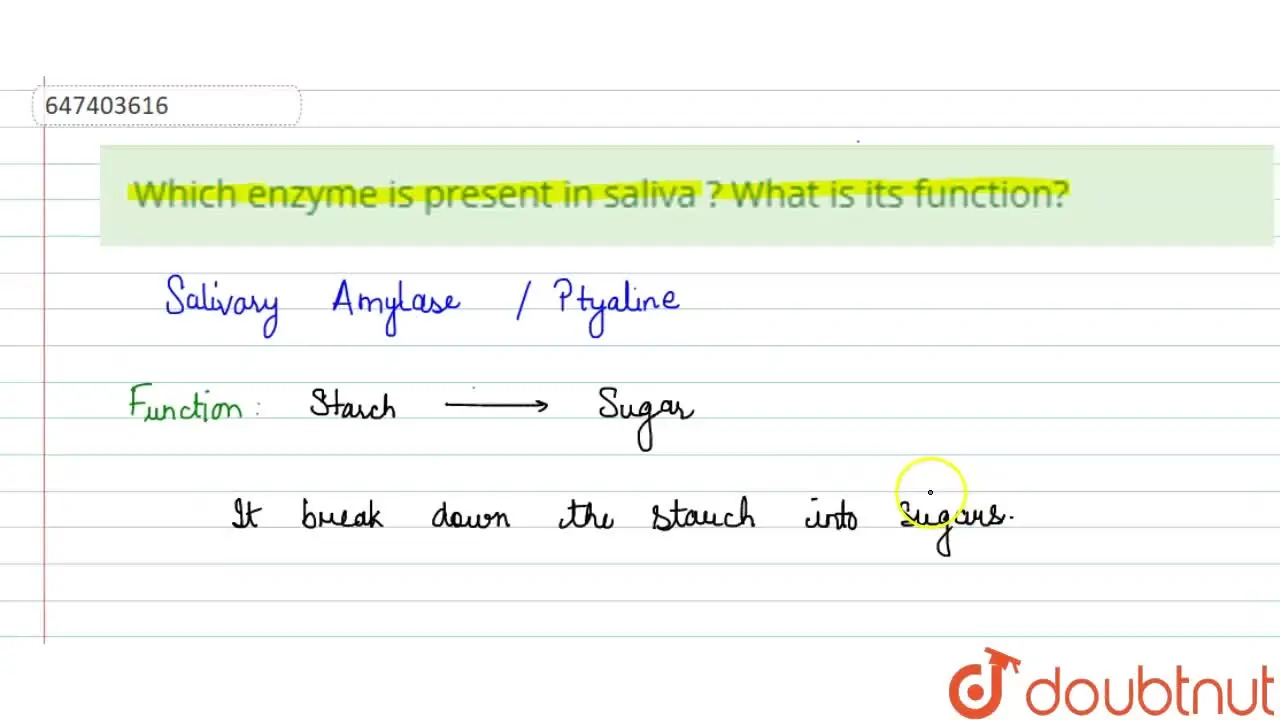 647403616
Which enzyme is present in saliva ? What is its function?
Salivary Amylase / Ptyaline
Function: Starch → Sugar
It break down the starch into sugars.
doubtnut